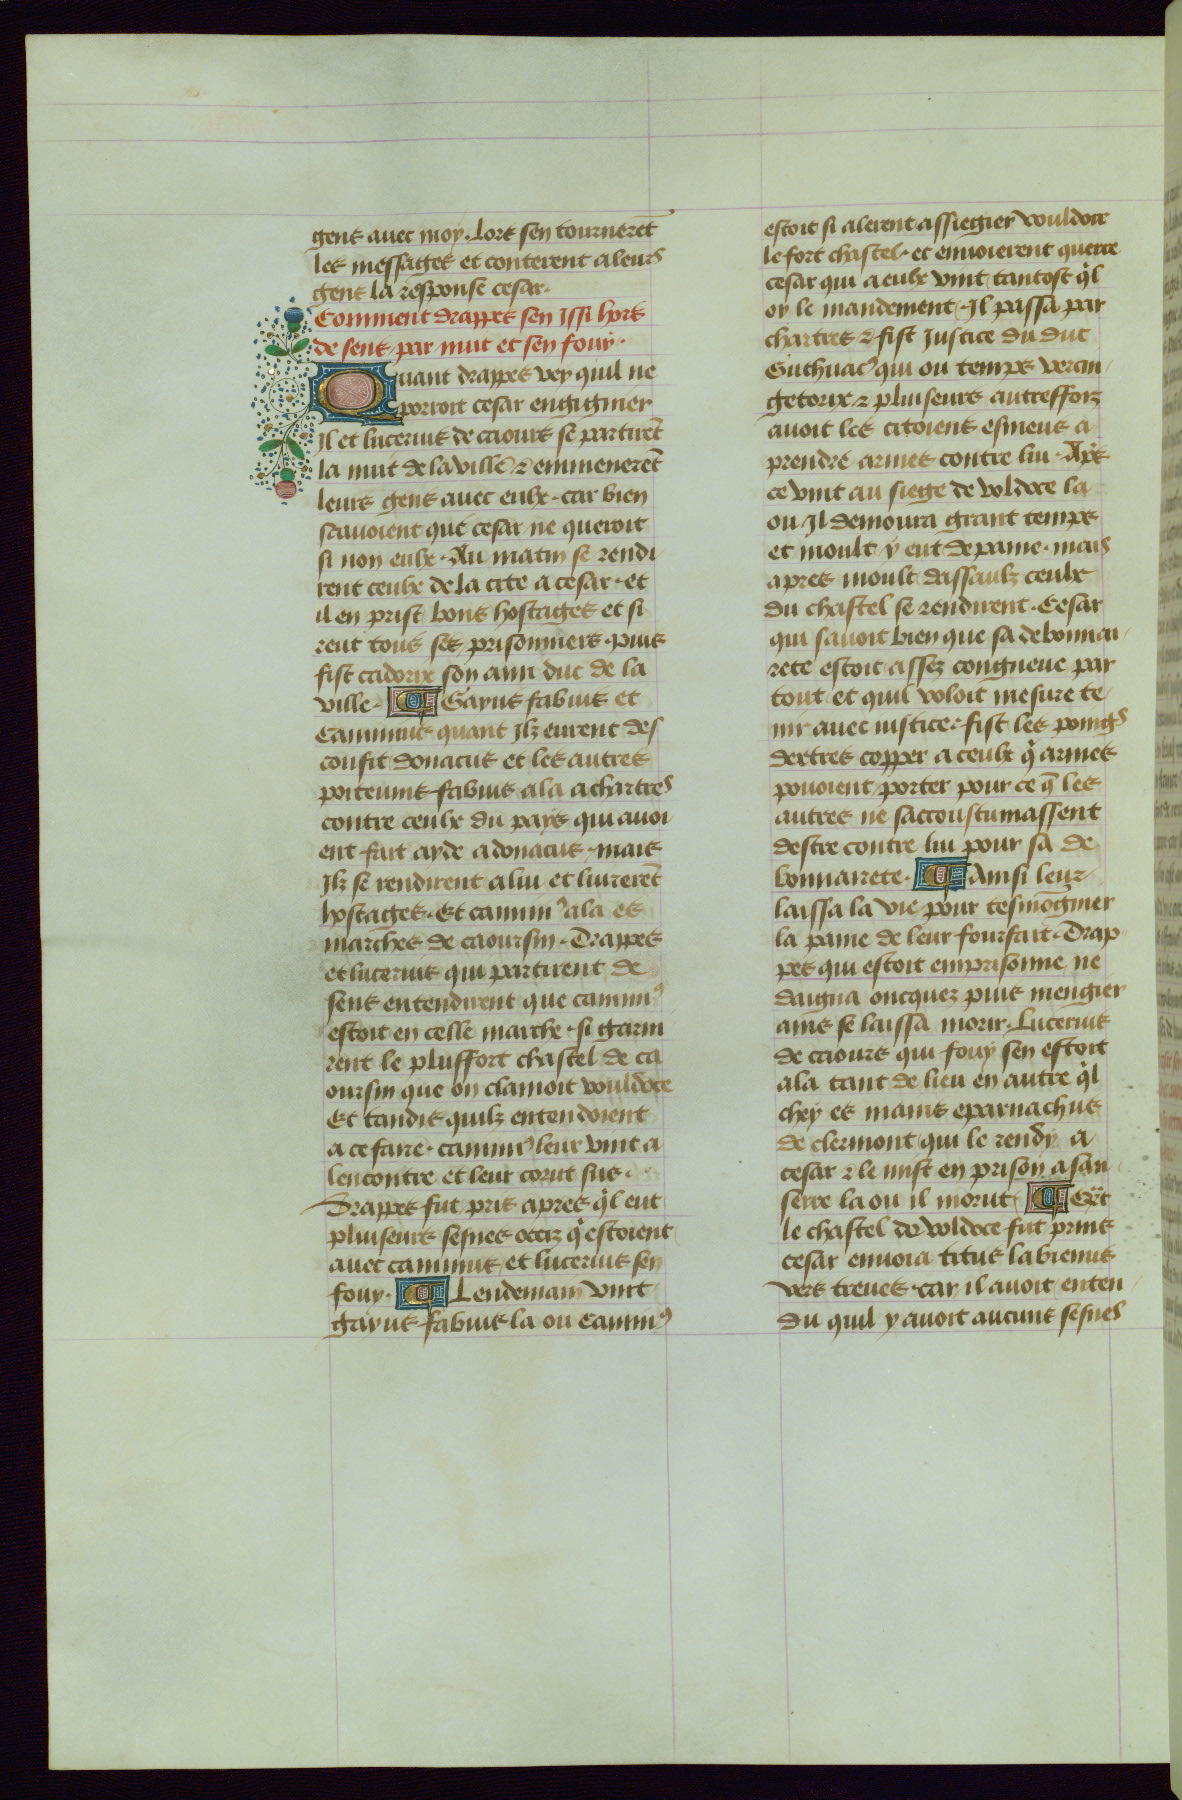 gens auec moy. Lors sen tournerēt
les messages et conterent a leurs
gens la response cesar.
Comment drappes sen issi hors
de sens par nuit et sen fouy.
Quant drappes vey quil ne
porroit cesar engignier
Il et lucerius de caours se partirēt
la nuit de la ville ⁊ emmenerēt
leurs gens auec eulx. car bien
scauoient que cesar ne queroit
si non eulx. Au matin se rendi
rent ceulx de la cite a cesar. et
il en prist bons hostages et si
reut tous ses prisonniers. puis
fist cadorix son ami duc de la
ville. Gayus fabius et
Caninius quant Ilz eurent des
confit donacus et les autres
poiteuins fabius ala a chartres
contre ceulx du pays qui auoi
ent fait ayde a donacus. mais
Ilz se rendirent a lui et liurerēt
hostages. Et caninꝰ ala es
marches de caoursin. Drappes
et lucerius qui partirent de
sens entendirent que caninꝰ
estoit en celle marche. si garni
rent le plusfort chastel de ca
oursin que on clamoit vouldoce
Et tandis quilz entendoient
a ce faire. caninꝰ leur vint a
lencontre et leur corut sus.
Drappes fut pris apres q̓l eut
pluiseurs sesnes occiz q̓ estoient
auec caninius et lucerius sen
fouy. Lendemain vint
gayus fabius la ou Caninꝰ
estoit si alerent assiegier vouldoce
le fort chastel. et enuoierent querre
cesar qui a eulx vint tantost q̓l
oy le mandement. Il passa par
chartres ⁊ fist Justice du duc
Guthuacꝰ qui ou temps vercin
getorix ⁊ pluiseurs autresfoiz
auoit les citoiens esmeus a
prendre armes contre lui. Ap̓s
ce vint au siege de voldoce la
ou Il demoura grant temps
et moult y eut de paine. mais
apres moult dassaulz ceulx
du chastel se rendirent. Cesar
qui sauoit bien que sa debonnai
rete estoit assez congneue par
tout et quil voloit mesure te
nir auec iustice. fist les poings
dextres copper a ceulx q̓ armes
pouoient porter pour ce q̄ les
autres ne saccoustumassent
destre contre lui pour sa de
bonnairete. Ainsi leur
laissa la vie pour tesmongnier
la paine de leur fourfait. Drap
pes qui estoit emprisonne ne
daigna oncquez puis mengier
ains se laissa morir. Lucerius
de caours qui fouy sen estoit
ala tant de lieu en autre q̓l
chey es mains eparnachus
de clermont qui le rendy a
cesar ⁊ le mist en prison a san
serre la ou il morut.
le chastel de voldoce fut prins
cesar enuoia titus labienus
vers treues. car il auoit enten
du quil y auoit aucuns sesnes